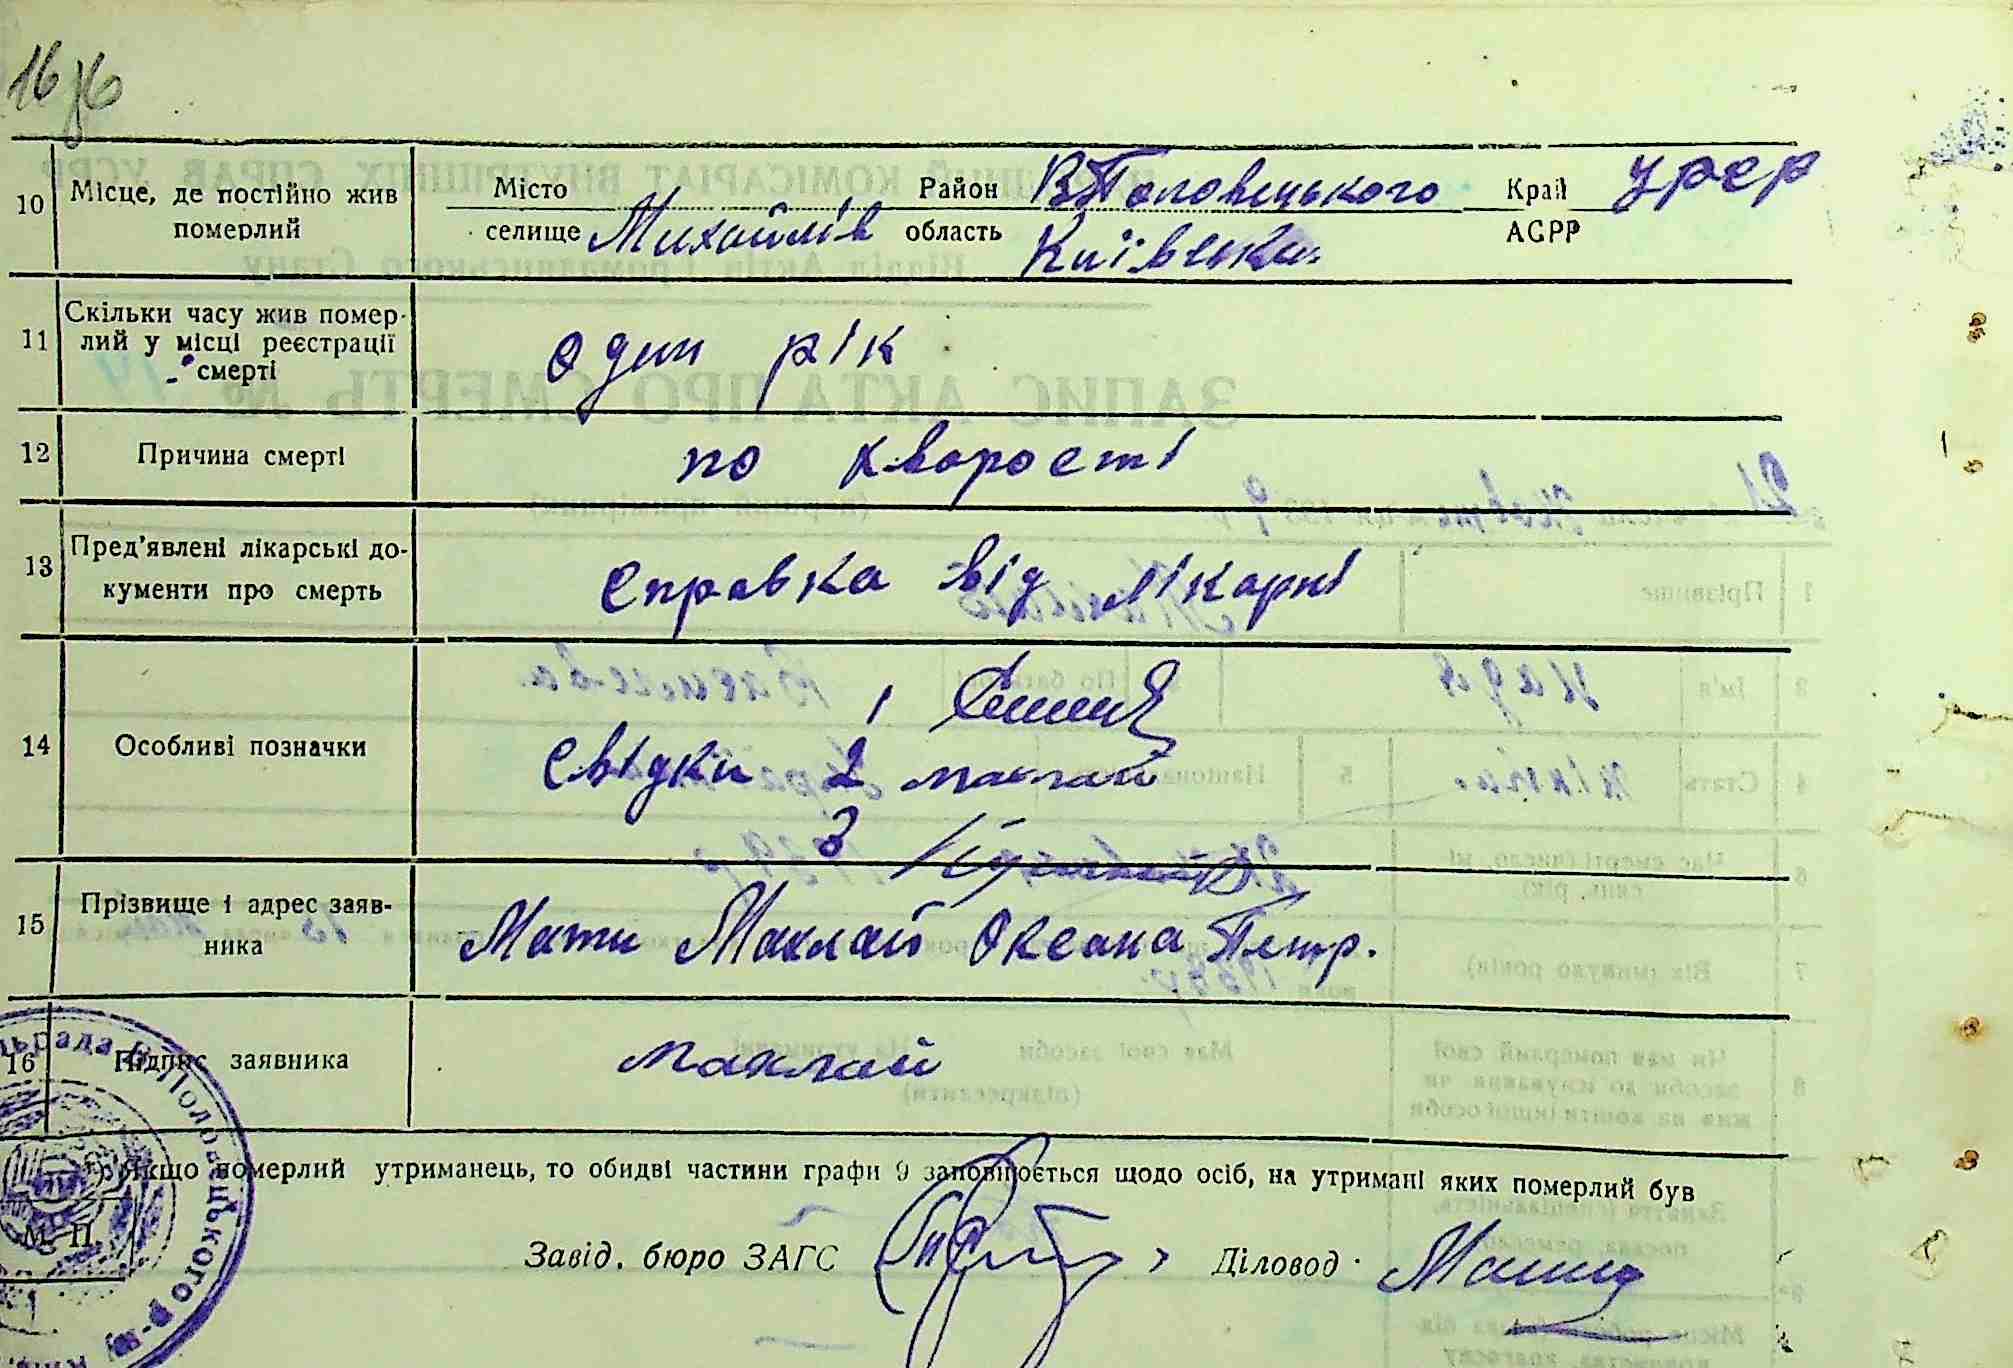 16
10 Місце, де постійно жив померлий
Місто Район В Половецького Край УРСР
селище Михайлів область Київська АСРР
11 Скільки часу жив помер-
лий у місці реєстрації
смерті
один рік
12 Причина смерті по хворості
13 Пред'явлені лікарські до-
кументи про смерть
справка від лікарні
14 Особливі позначки
1
Свідки 2 Маклай
3
15 Прізвище і адрес заяв-
ника
Мати Маклай Оксана Петр.
16 Підпис заявника Маклай
Якщо померлий утриманець, то обидві частини графи 9 заповнюється щодо осіб, на утримані яких померлий був
М. П.
Завід. бюро ЗАГС Діловод